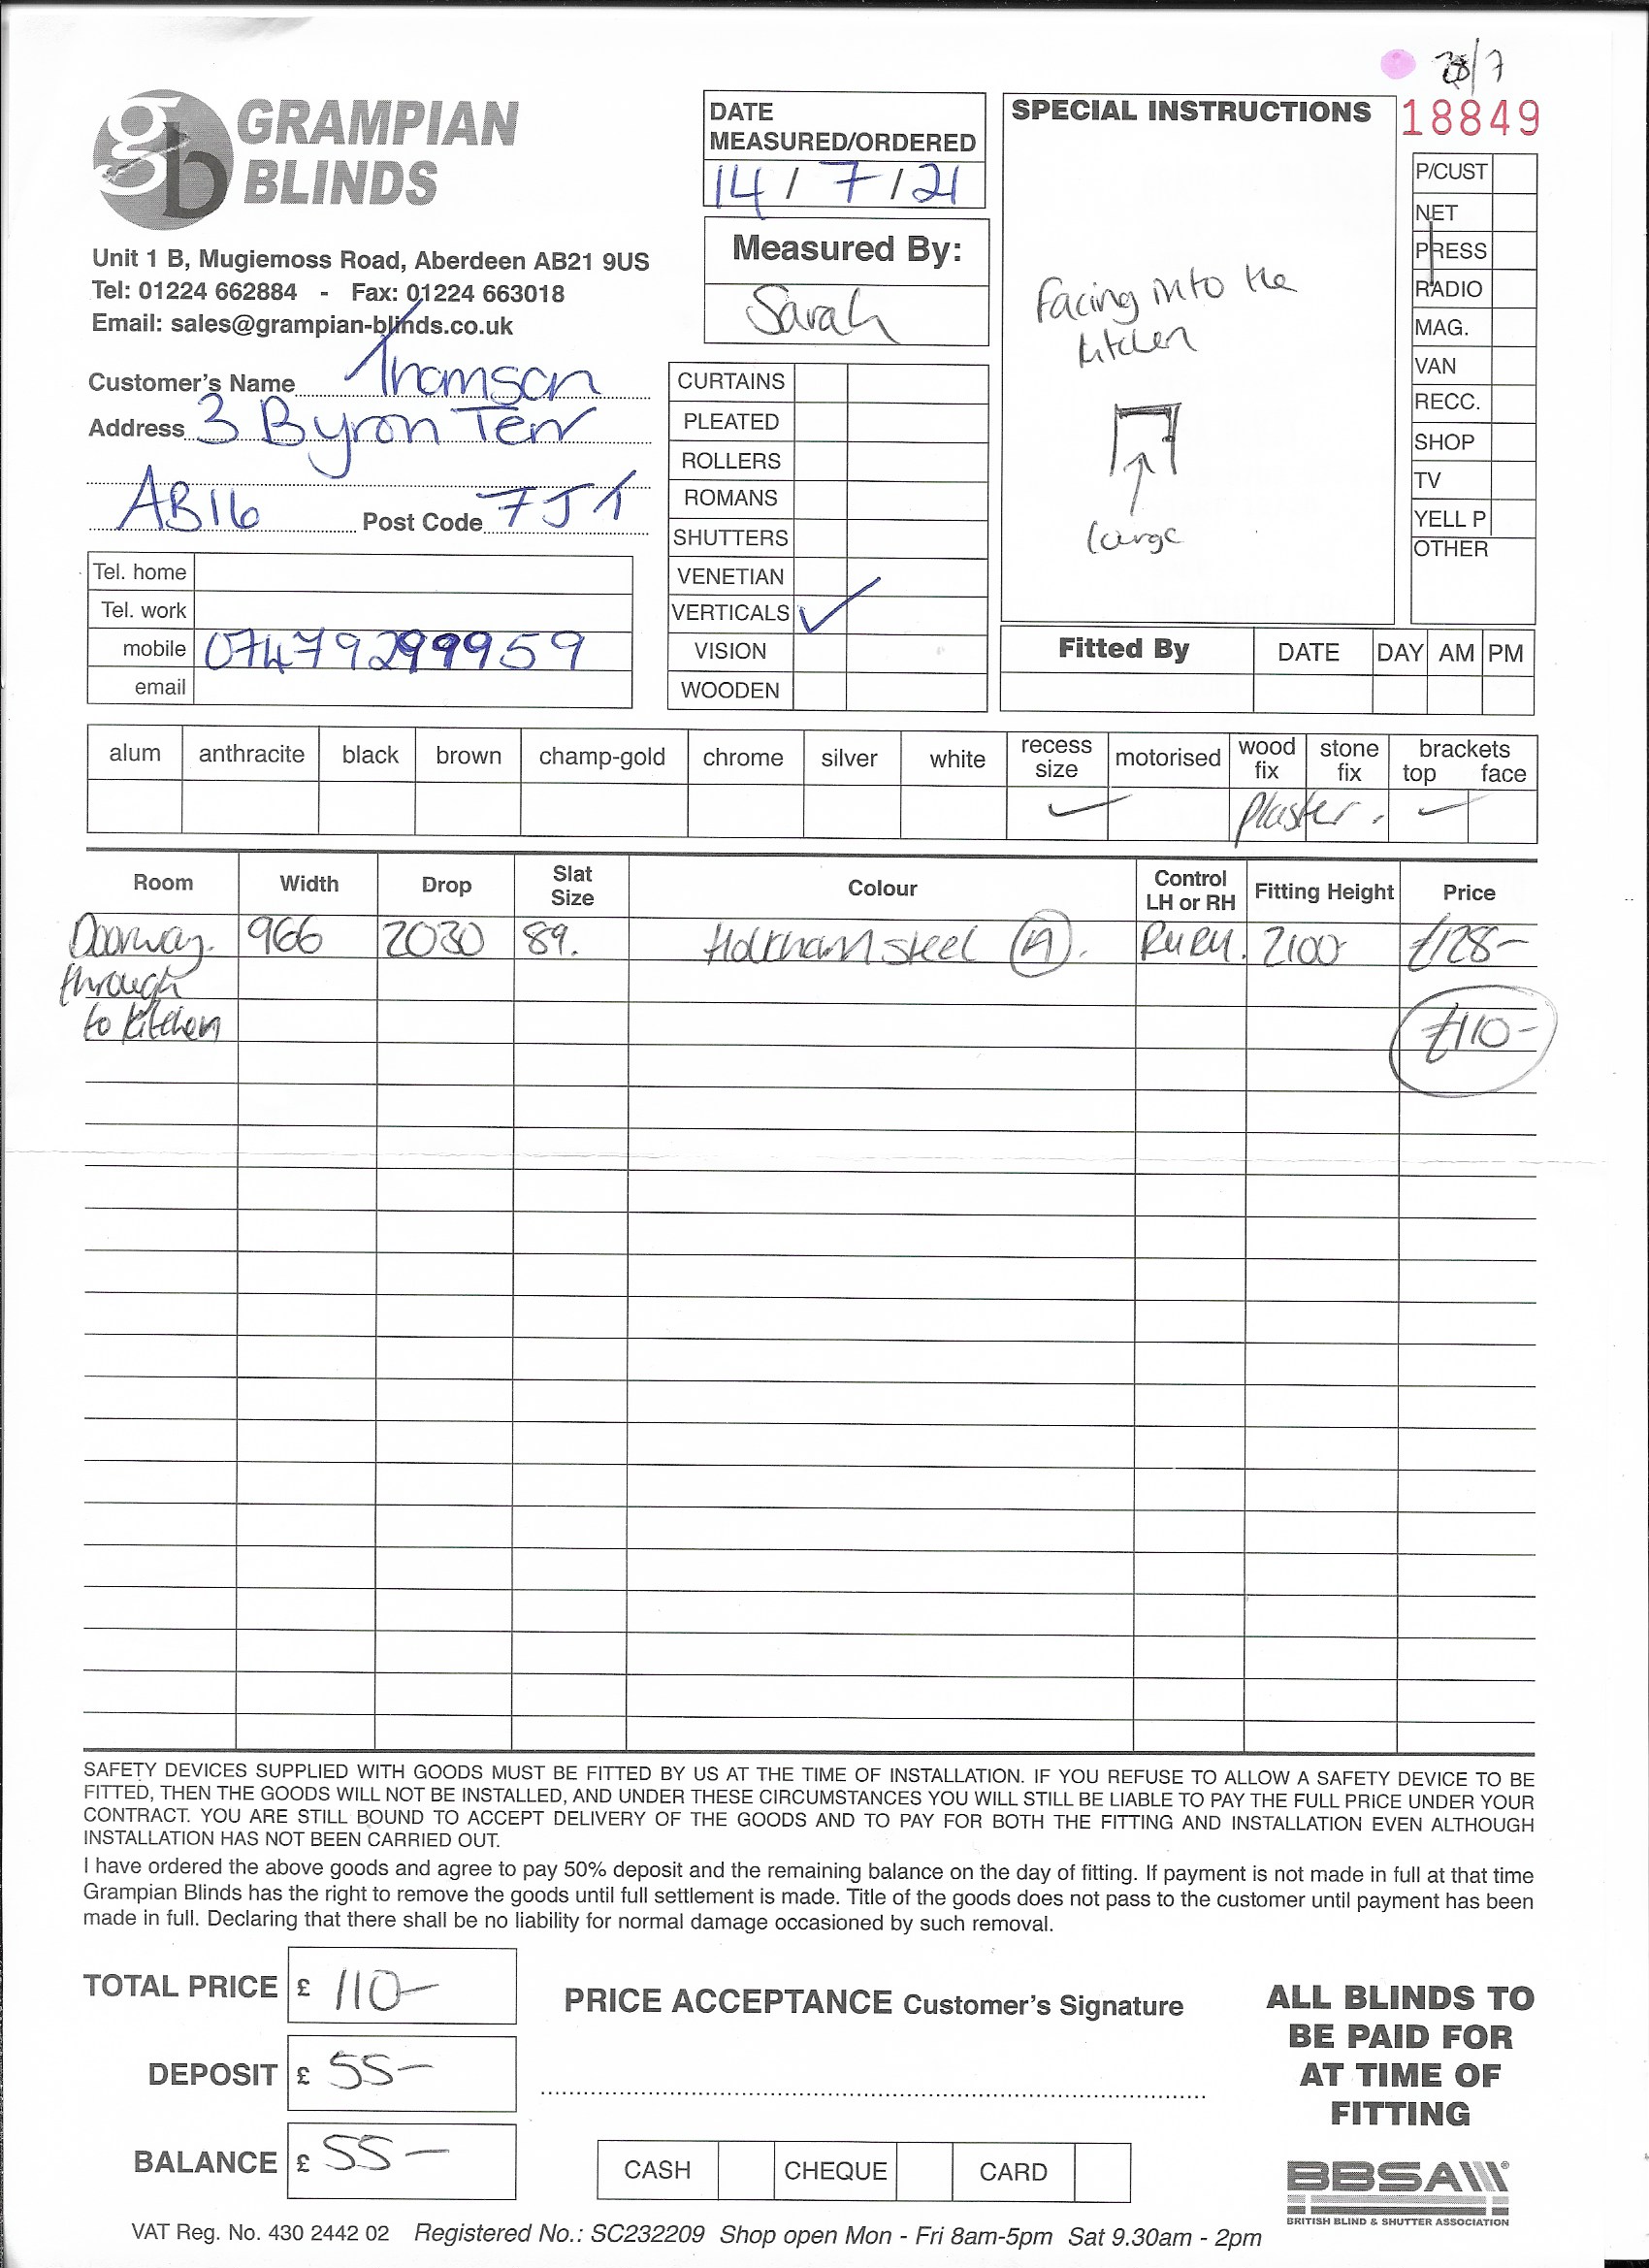 28/7
18849
gb GRAMPIAN
BLINDS
Unit 1 B, Mugiemoss Road, Aberdeen AB21 9US
Tel: 01224 662884 - Fax: 01224 663018
Email: sales@grampian-blinds.co.uk
Customer's Name Thomson
Address 3 Byron Terr
AB16 Post Code 7JT
Tel. home
Tel. work
mobile 07479299959
email
DATE
MEASURED/ORDERED
14/7/21
Measured By:
Sarah
CURTAINS
PLEATED
ROLLERS
ROMANS
SHUTTERS
VENETIAN
VERTICALS ✓
VISION
WOODEN
SPECIAL INSTRUCTIONS
Facing into the
kitchen
large
P/CUST
NET
PRESS
RADIO
MAG.
VAN
RECC.
SHOP
TV
YELL P
OTHER
Fitted By DATE DAY AM PM
alum anthracite black brown champ-gold chrome silver white recess size motorised wood fix stone fix brackets top face
✓ plaster. ✓
Room Width Drop Slat Size Colour Control LH or RH Fitting Height Price
Doorway. 966 2030 89. Holkham steel (A). RHRH. 2100 £128-
through
to kitchen £110-
SAFETY DEVICES SUPPLIED WITH GOODS MUST BE FITTED BY US AT THE TIME OF INSTALLATION. IF YOU REFUSE TO ALLOW A SAFETY DEVICE TO BE
FITTED, THEN THE GOODS WILL NOT BE INSTALLED, AND UNDER THESE CIRCUMSTANCES YOU WILL STILL BE LIABLE TO PAY THE FULL PRICE UNDER YOUR
CONTRACT. YOU ARE STILL BOUND TO ACCEPT DELIVERY OF THE GOODS AND TO PAY FOR BOTH THE FITTING AND INSTALLATION EVEN ALTHOUGH
INSTALLATION HAS NOT BEEN CARRIED OUT.
I have ordered the above goods and agree to pay 50% deposit and the remaining balance on the day of fitting. If payment is not made in full at that time
Grampian Blinds has the right to remove the goods until full settlement is made. Title of the goods does not pass to the customer until payment has been
made in full. Declaring that there shall be no liability for normal damage occasioned by such removal.
TOTAL PRICE £ 110-
DEPOSIT £ 55-
BALANCE £ 55-
PRICE ACCEPTANCE Customer's Signature
CASH CHEQUE CARD
ALL BLINDS TO
BE PAID FOR
AT TIME OF
FITTING
BBSA
BRITISH BLIND & SHUTTER ASSOCIATION
VAT Reg. No. 430 2442 02 Registered No.: SC232209 Shop open Mon - Fri 8am-5pm Sat 9.30am - 2pm